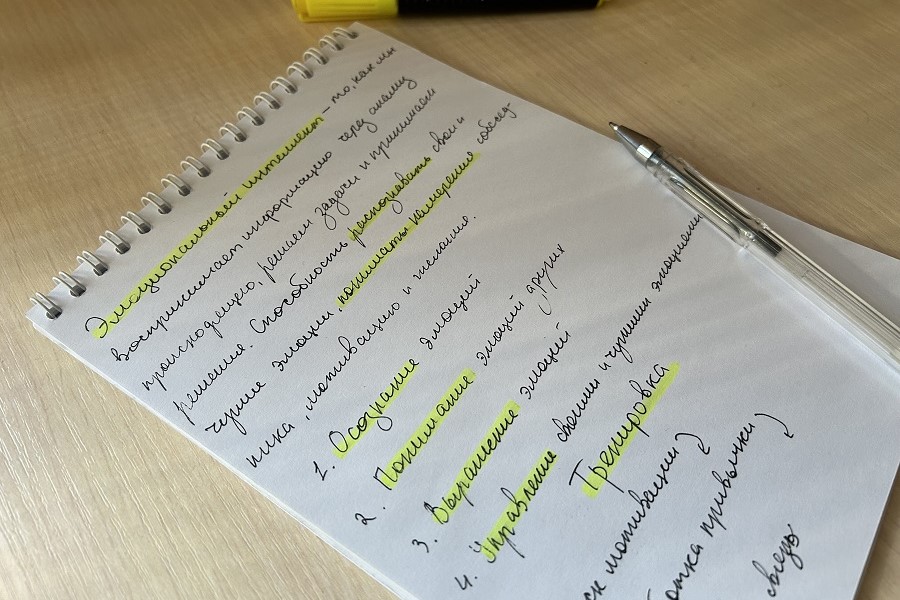 Эмоциональный интеллект – то, как мы
воспринимаем информацию через анализ
происходящего, решаем задачи и принимаем
решения. Способность распознавать свои и
чужие эмоции, понимать намерения собесед-
ника, мотивацию и желание.
1. Осознание эмоций
2. Понимание эмоций других
3. Выражение эмоций
4. Управление своими и чужими эмоциями
Тренировка
мотивации
привычки